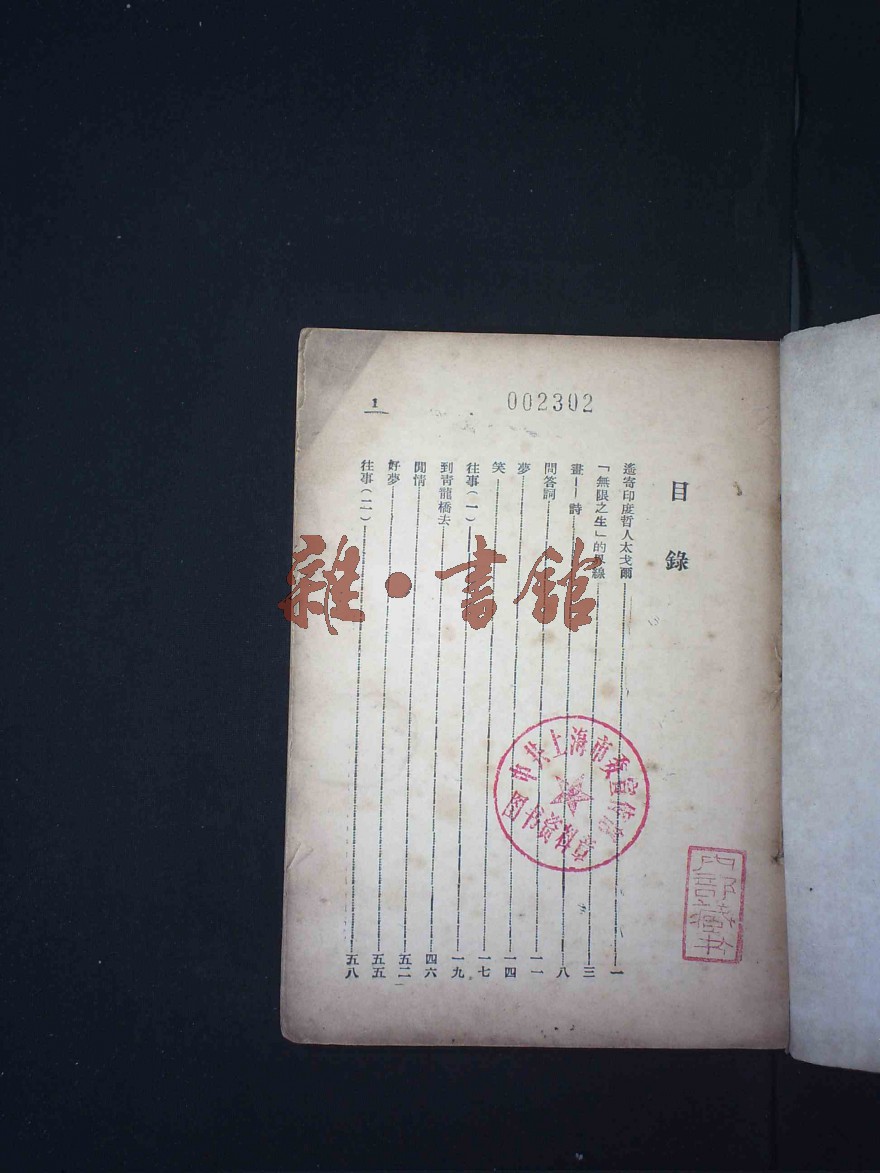 002302
1
目錄
遙寄印度哲人太戈爾 一
「無限之生」的界線 三
畫——詩 八
問答詞 一一
夢 一四
笑 一七
往事(一) 一九
到青龍橋去 四六
閒情 五二
好夢 五五
往事(二) 五八
雜·書館
中共上海市委宣传部
图书资料章